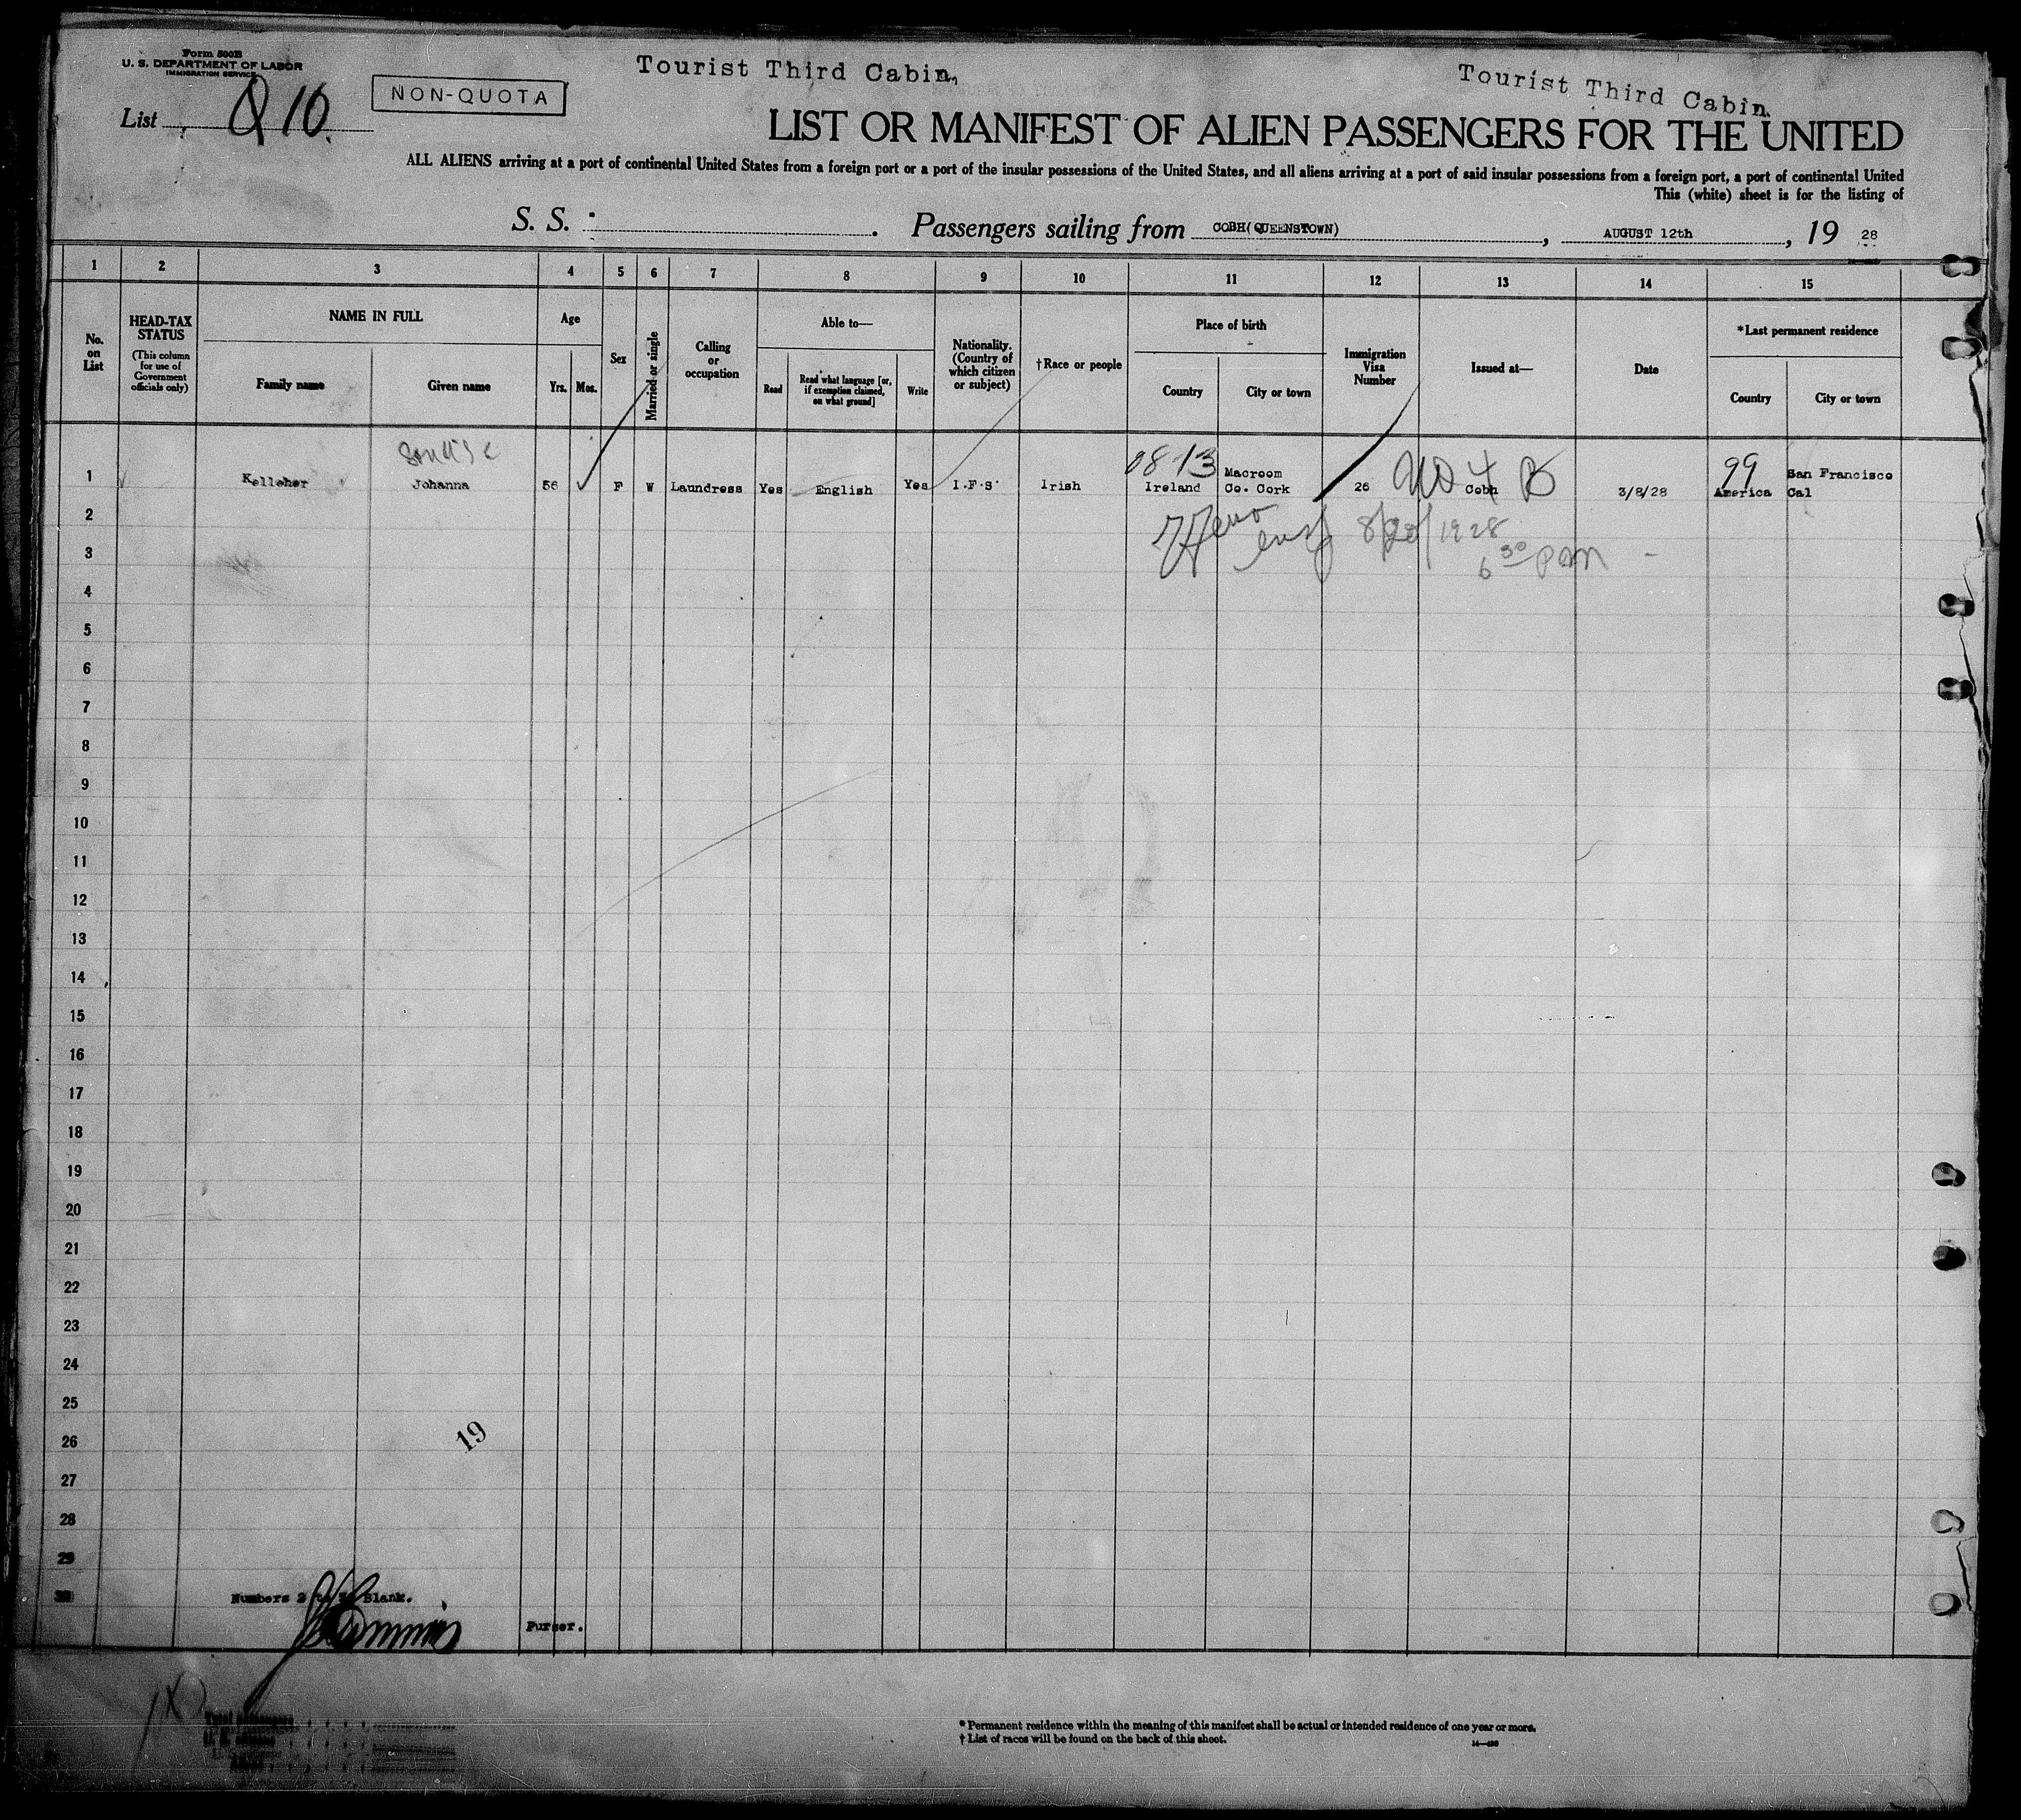 Form 500B
U. S. DEPARTMENT OF LABOR
IMMIGRATION SERVICE
List Q 10
NON-QUOTA
Tourist Third Cabin,
Tourist Third Cabin.
LIST OR MANIFEST OF ALIEN PASSENGERS FOR THE UNITED
ALL ALIENS arriving at a port of continental United States from a foreign port or a port of the insular possessions of the United States, and all aliens arriving at a port of said insular possessions from a foreign port, a port of continental United
This (white) sheet is for the listing of
S. S. . Passengers sailing from COBH(QUEENSTOWN), AUGUST 12th, 19 28
1 2 3 4 5 6 7 8 9 10 11 12 13 14 15
No. on List
HEAD-TAX STATUS
(This column for use of Government officials only)
NAME IN FULL
Family name
Given name
Age
Yrs.
Mos.
Sex
Married or single
Calling or occupation
Able to—
Read
Read what language [or, if exemption claimed, on what ground]
Write
Nationality. (Country of which citizen or subject)
†Race or people
Place of birth
Country
City or town
Immigration Visa Number
Issued at—
Date
*Last permanent residence
Country
City or town
08-13
99
1 Kelleher Johanna 56 F W Laundress Yes English Yes I.F.S. Irish Ireland Macroom Co. Cork 26 Cobh 3/8/28 America San Francisco Cal
8/20/1928
6 30 PM
2
3
4
5
6
7
8
9
10
11
12
13
14
15
16
17
18
19
20
21
22
23
24
25
19
26
27
28
29
30
Numbers 2 to 30 Blank.
Purser.
* Permanent residence within the meaning of this manifest shall be actual or intended residence of one year or more.
† List of races will be found on the back of this sheet.